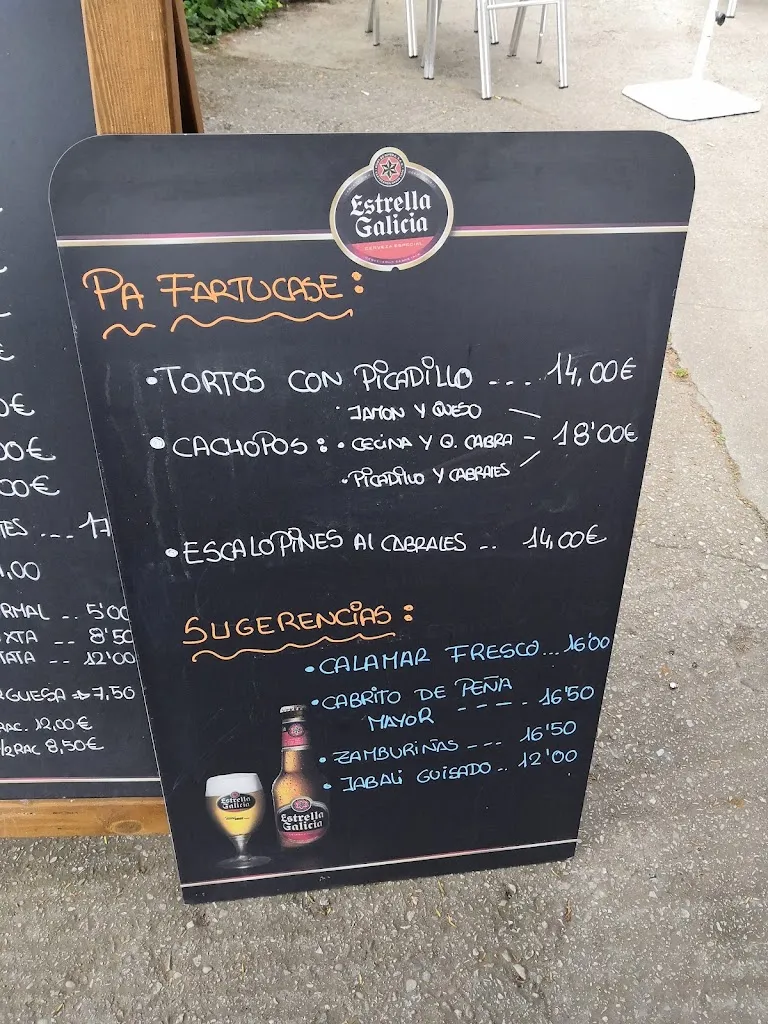 Estrella
Galicia
CERVEZA ESPECIAL
PA FARTUCASE:
• TORTOS CON PICADILLO .... 14,00€
• JAMON Y QUESO
• CACHOPOS: • CECINA Y Q. CABRA - 18'00€
• PICADILLO Y CABRALES
• ESCALOPINES AL CABRALES .. 14,00€
SUGERENCIAS:
• CALAMAR FRESCO... 16'00
• CABRITO DE PEÑA
MAYOR ---- 16'50
• ZAMBURIÑAS --- 16'50
• JABALI GUISADO .. 12'00
Estrella
Galicia
Estrella
Galicia
€
0€
00€
00€
TES ... 17
,00
RMAL .. 5'00
XTA -- 8'50
TATA -- 12'00
RGUESA → 7,50
RAC. 12,00€
1/2 RAC 8,50€